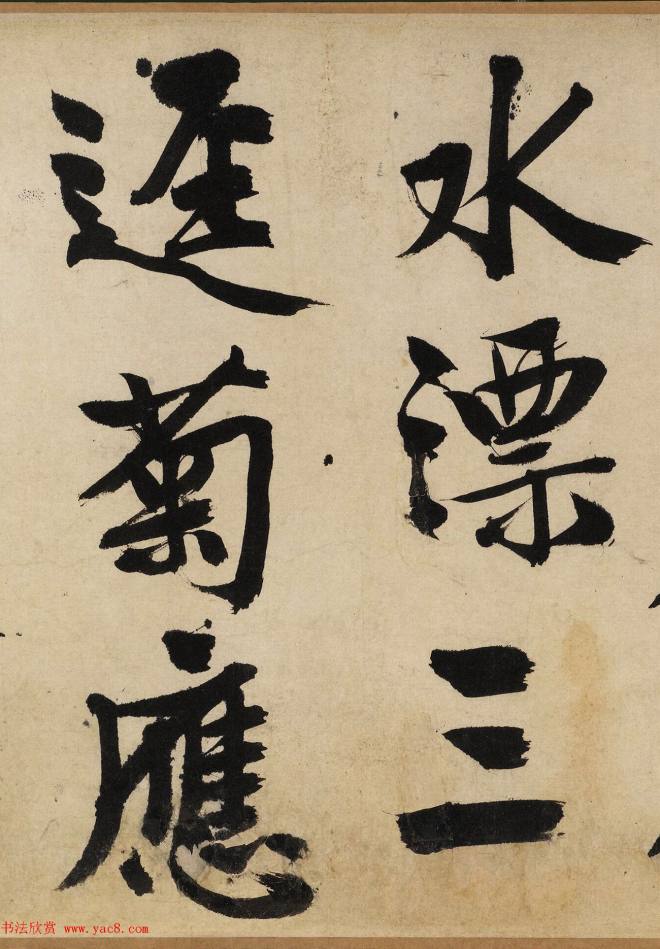 水漂三
逕菊應
书法欣赏 www.yac8.com